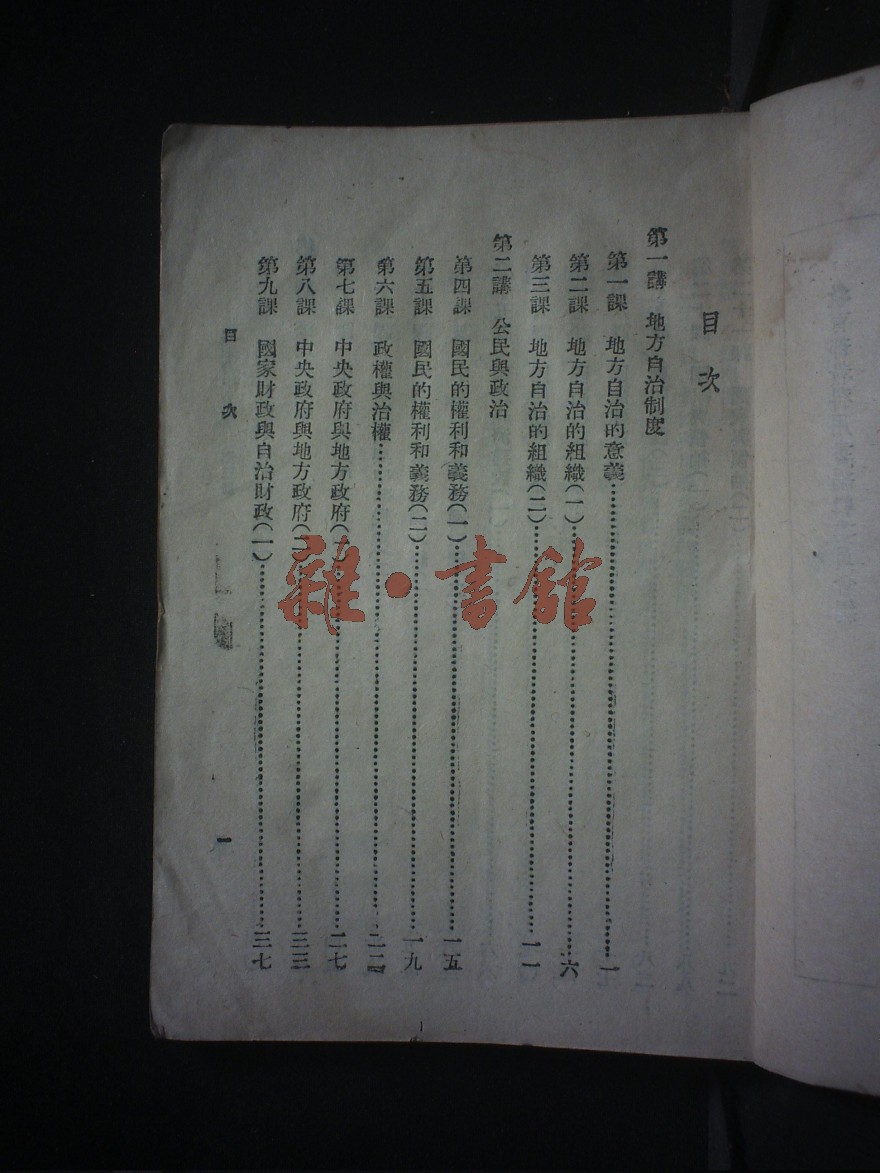 目次
第一講 地方自治制度
第一課 地方自治的意義……一
第二課 地方自治的組織(一)……六
第三課 地方自治的組織(二)……一一
第二講 公民與政治
第四課 國民的權利和義務(一)……一五
第五課 國民的權利和義務(二)……一九
第六課 政權與治權……二二
第七課 中央政府與地方政府(一)……二七
第八課 中央政府與地方政府(二)……三三
第九課 國家財政與自治財政(一)……三七
目次
一
雜·書館